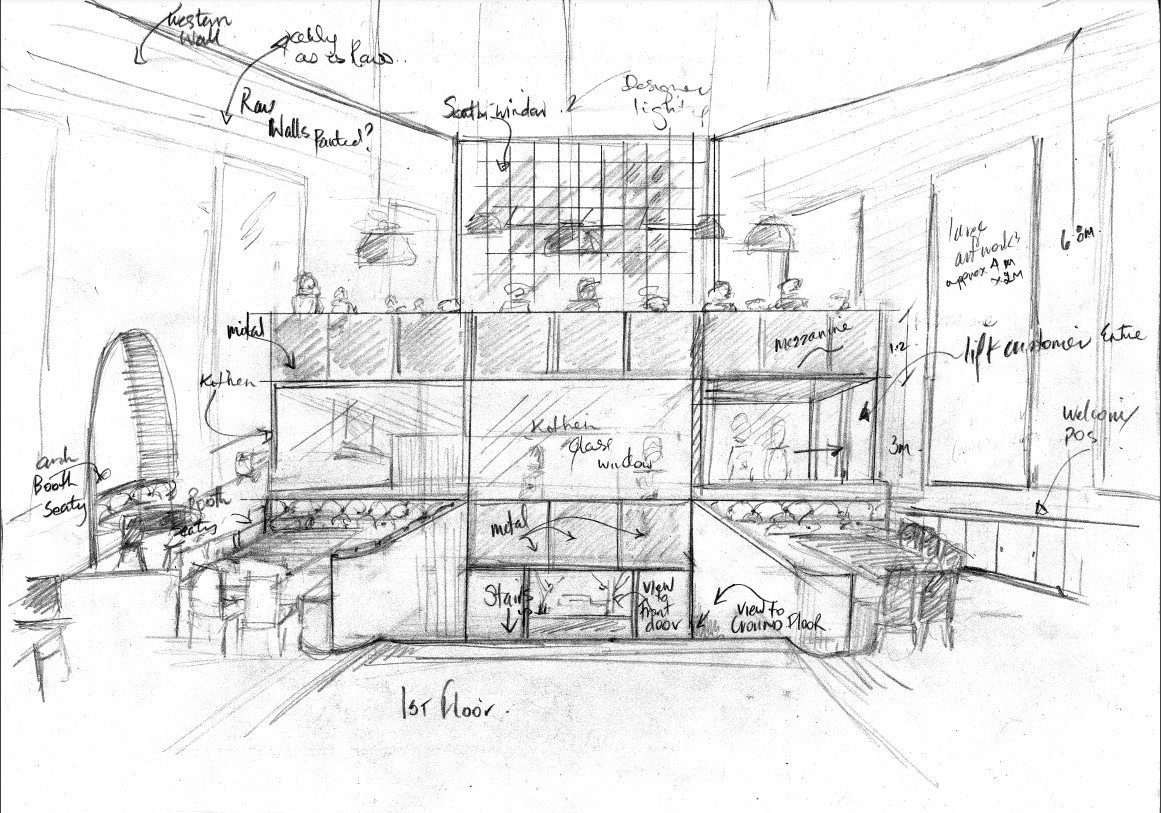 Western
Wall
as is Raw..
Raw
Walls Painted?
South window
Designer
light
large
art works
approx 4 m
x 2M
6.8M
metal
mezzanine
1.2
lift customer Entre
Kitchen
Kitchen
Glass
window
3M
Welcome/
POS
arch
Booth
Seaty
Booth
Seaty
metal
Stairs
up
view
to
front
door
view to
GROUND FLOOR
1ST Floor.